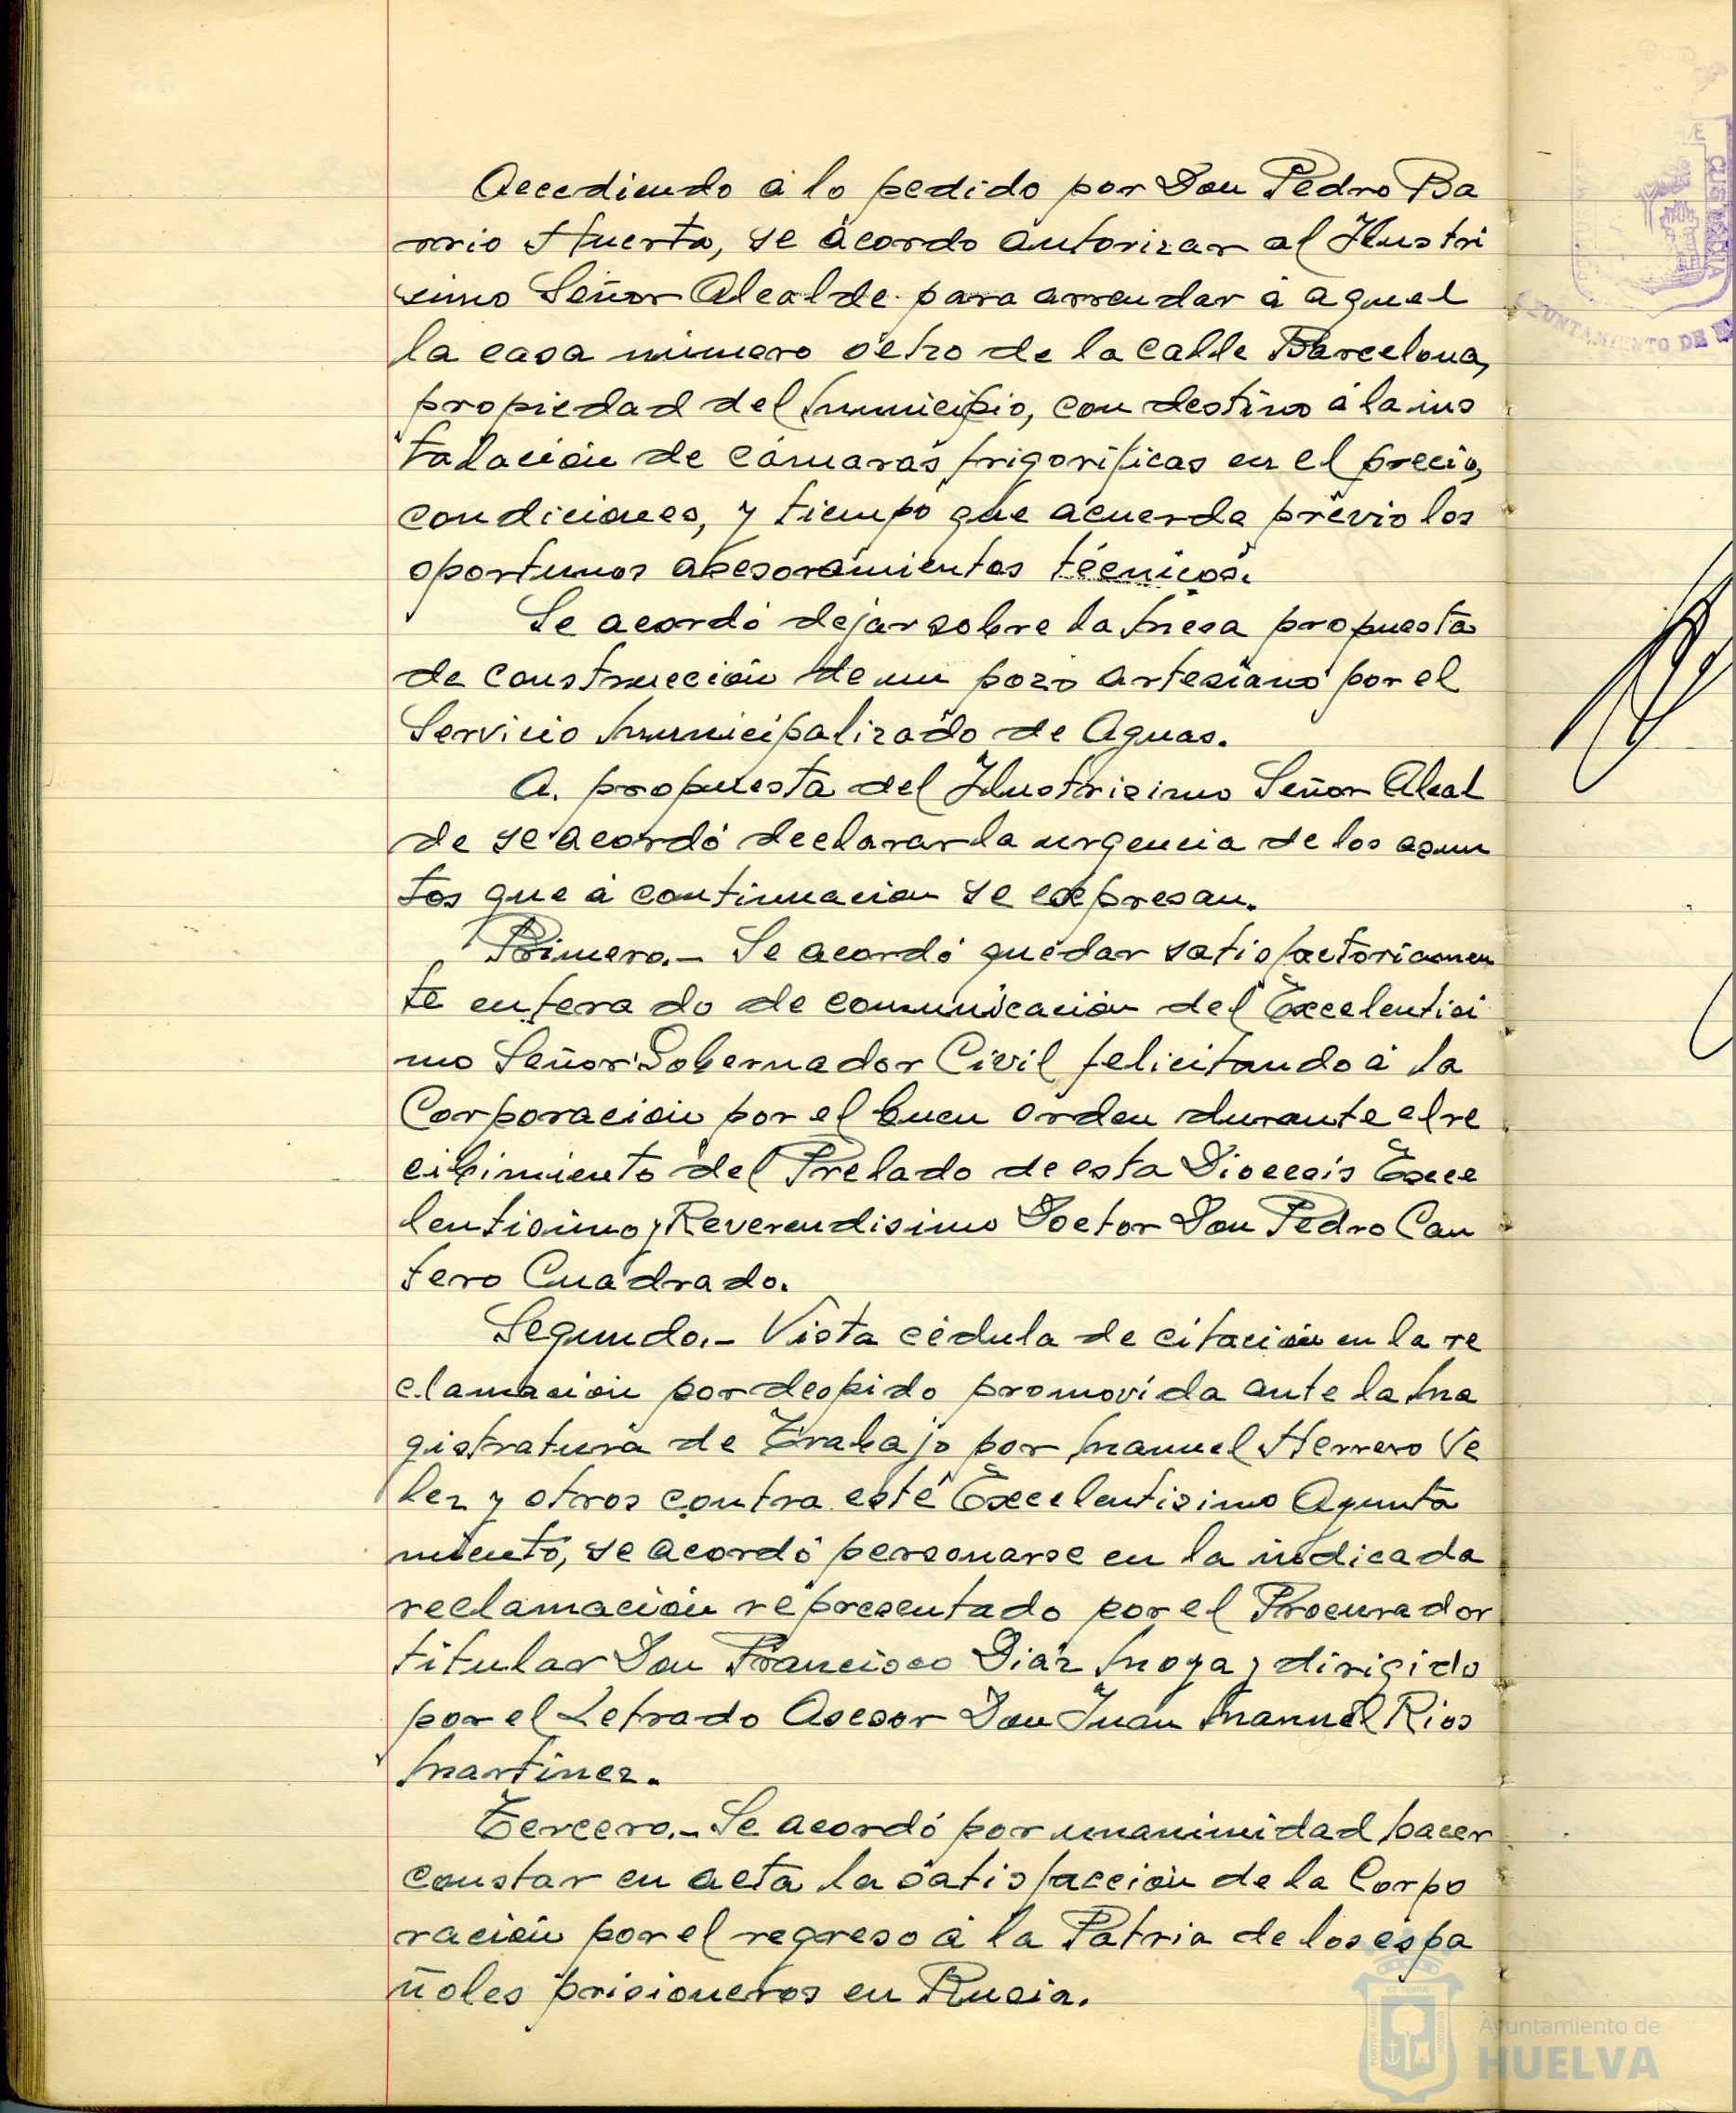 Accediendo á lo pedido por Don Pedro Ba
rrio Huerta, se acordo autorizar al Ilustri
simo Señor Alcalde para arrendar á aquel
la casa número ocho de la calle Barcelona,
propiedad del Municipio, con destino á la ins
talación de cámaras frigoríficas en el precio,
condiciones, y tiempo que acuerde previo los
oportunos asesoramientos técnicos.
Se acordó dejar sobre la Mesa propuesta
de construcción de un pozo artesiano por el
Servicio Municipalizado de Aguas.
A. propuesta del Ilustrisimo Señor Alcal
de se acordó declarar la urgencia de los asun
tos que á continuación se expresan.
Primero.- Se acordó quedar satisfactoriamen
te enterado de comunicación del Excelentisi
mo Señor Gobernador Civil felicitando á la
Corporación por el buen orden durante el re
cibimiento del Prelado de esta Diocesis Exce
lentisimo y Reverendisimo Doctor Don Pedro Can
tero Cuadrado.
Segundo.- Vista cédula de citación en la re
clamación por despido promovida ante la Ma
gistratura de Trabajo por Manuel Herrero Ve
lez y otros contra este Excelentisimo Ayunta
miento, se acordó personarse en la indicada
reclamación representado por el Procurador
titular Don Francisco Diáz Moya y dirigido
por el Letrado Asesor Don Juan Manuel Rios
Martinez.
Tercero.- Se acordó por unanimidad hacer
constar en acta la satisfacción de la Corpo
ración por el regreso á la Patria de los espa
ñoles prisioneros en Rusia.
AYUNTAMIENTO DE
Ayuntamiento de
HUELVA